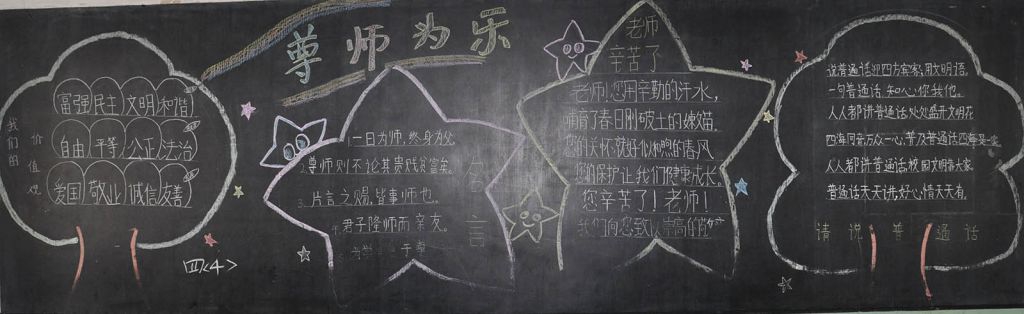 尊师为乐
我们的价值观
富强 民主 文明 和谐
自由 平等 公正 法治
爱国 敬业 诚信 友善
四<4>
名言
1.一日为师,终身为父
2.尊师则不论其贵贱贫富矣。
3.片言之赐,皆事师也。
4.君子隆师而亲友。
老师
辛苦了
老师!您用辛勤的汗水,
哺育了春日刚破土的嫩苗。
您的关怀就好似和煦的春风
您的保护让我们健康成长。
您辛苦了!老师!
我们向您致以崇高的
说普通话迎四方宾客,用文明语,
一句普通话,知心你我他。
人人都讲普通话,处处盛开文明花
四海同音万众一心,普及普通话四海是一家
人人都讲普通话,校园文明靠大家
普通话天天讲,好心情天天有.
请说普通话